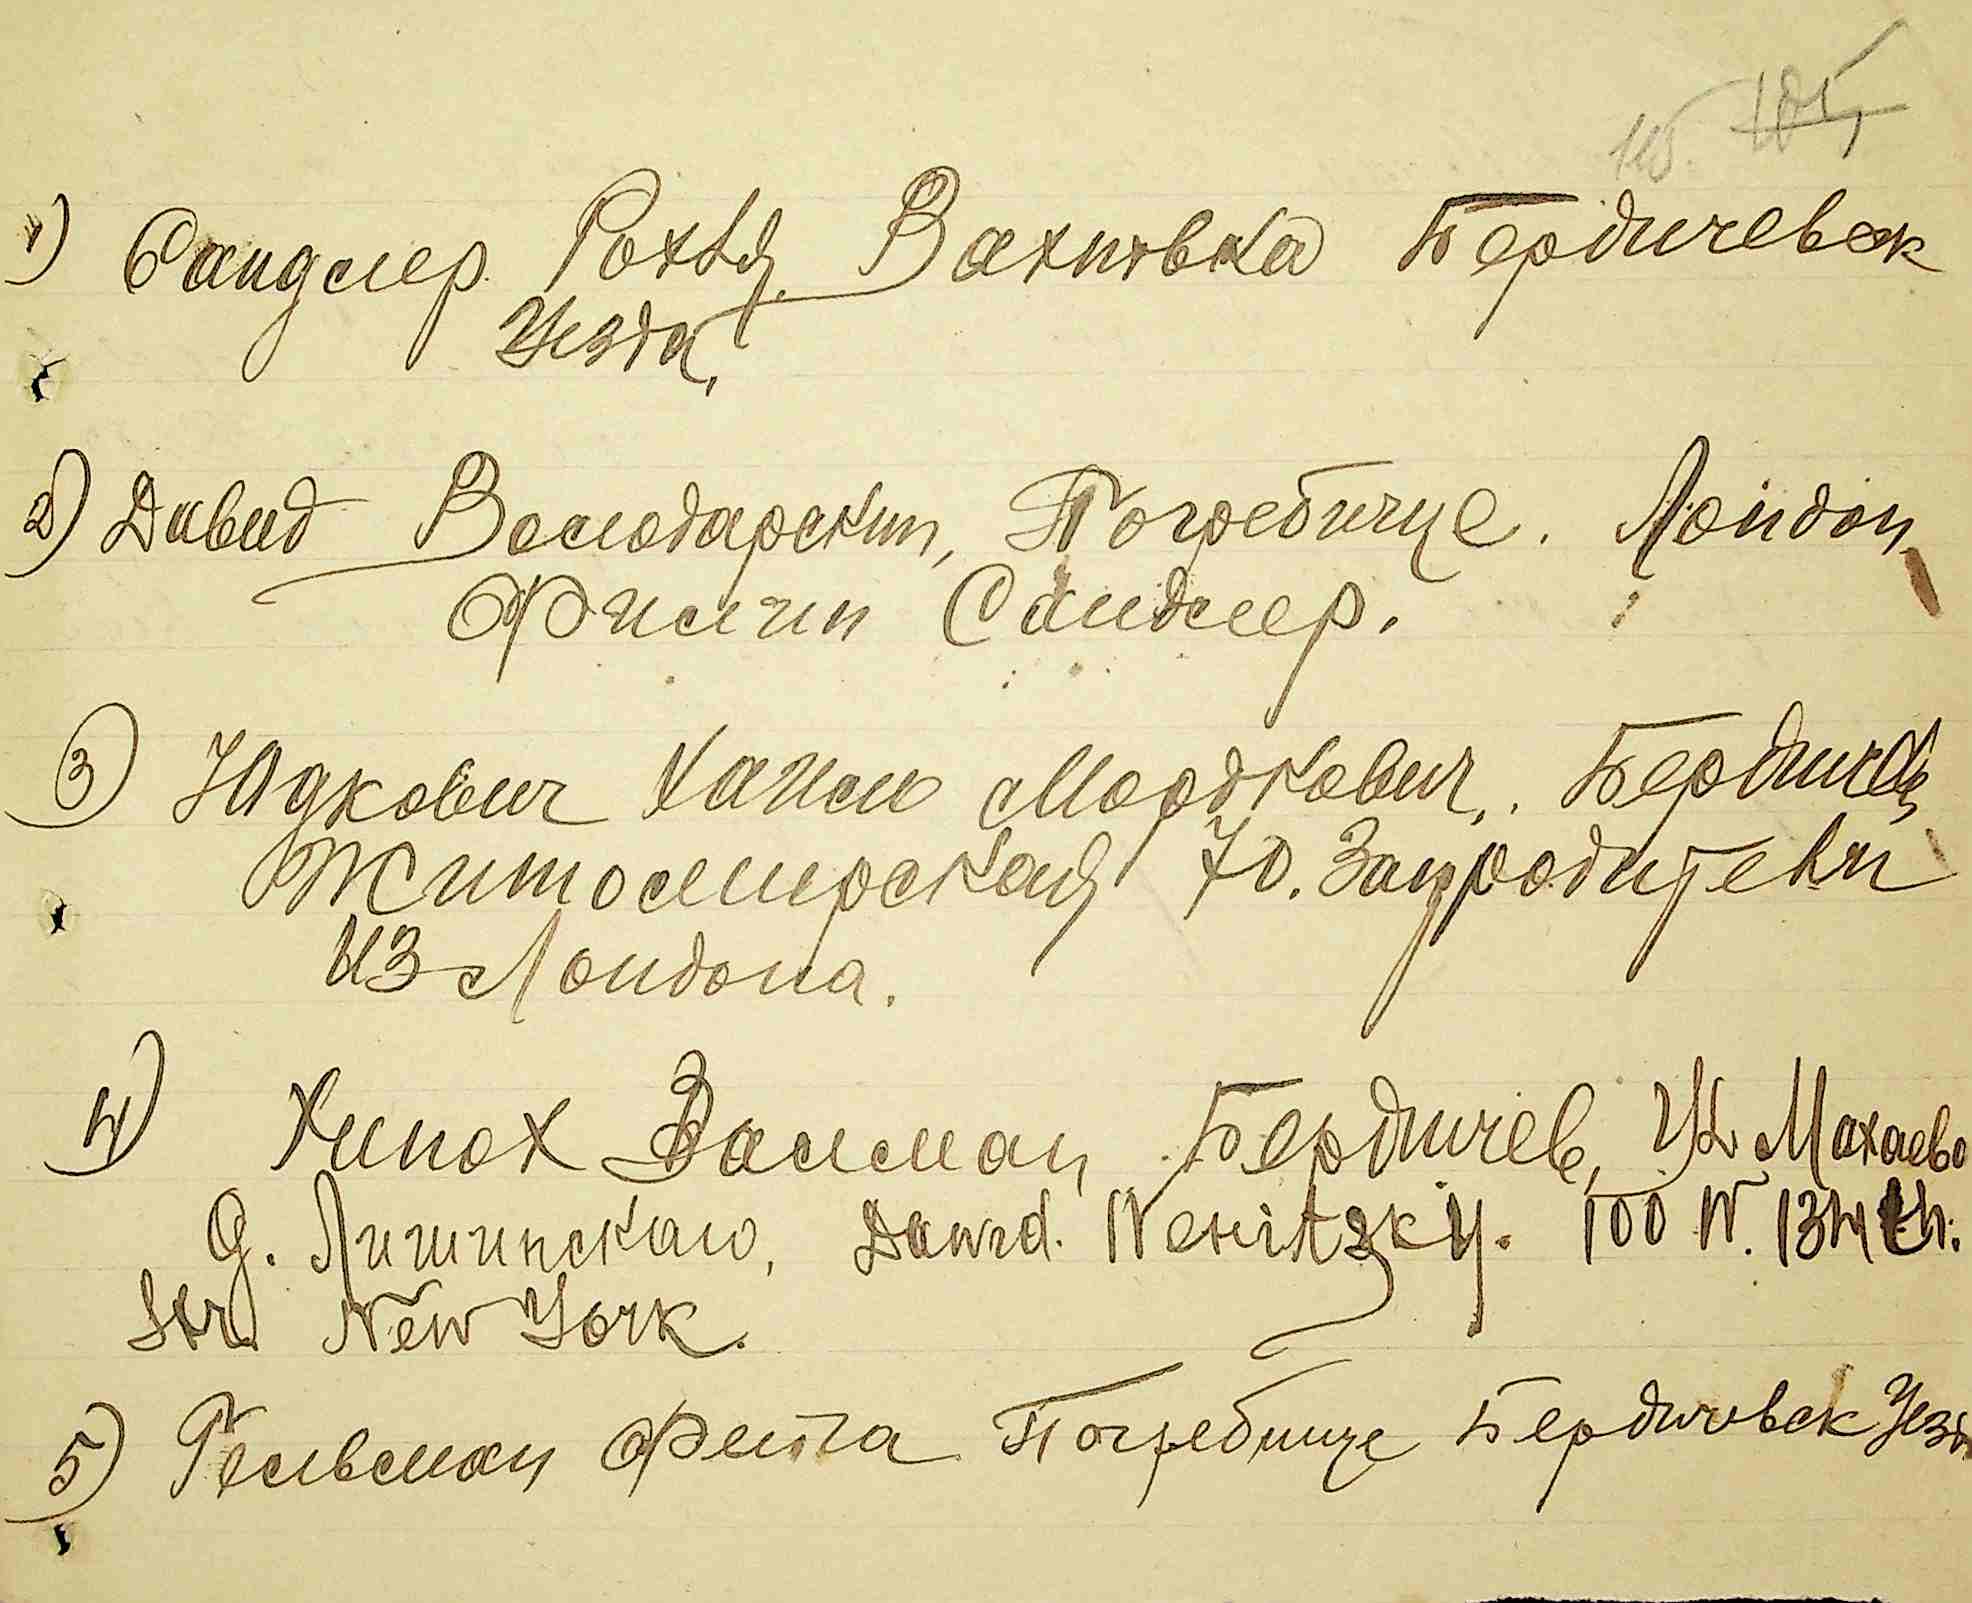 115. 105
1) Сандлер Рохля Вахновка Бердичевск
Уезда,
2) Давид Володарскин, Погребище. Лондон
Филип Сандлер.
3) Юдкович Хаим Мордкович, Бердичев
Житомирская 70. Запродители
из Лондона.
4) Хинох Залман Бердичев, Ул Махаево
д. Лишинскаго, Dawid. 100 W. 134 th.
Str. New York.
5) Гельман Фейга Погребище Бердичовск Уезд